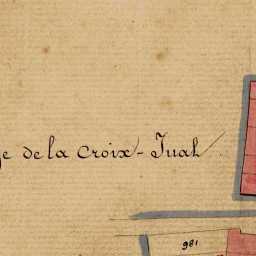 e de la Croix-Jual
981